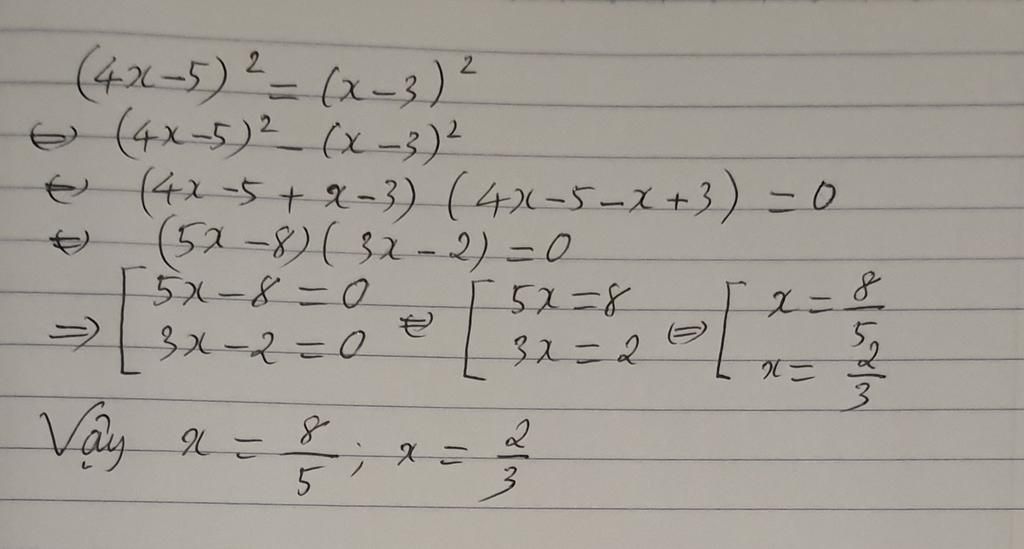 (4x-5)² = (x-3)²
⇔ (4x-5)² - (x-3)²
⇔ (4x-5+x-3)(4x-5-x+3) = 0
⇔ (5x-8)(3x-2) = 0
⇒ [ 5x-8=0 ; 3x-2=0 ⇔ [ 5x=8 ; 3x=2 ⇔ [ x=8/5 ; x=2/3
Vậy x = 8/5 ; x = 2/3